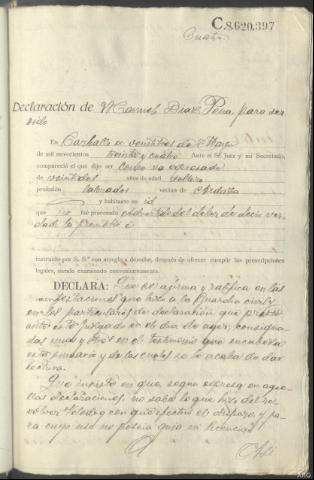 C.8.620.397
Cuatro
Declaración de Manuel Diaz Pena, para ser
oido
En Carballo a veintitres de Mayo
de mil novecientos treinta y cuatro Ante el Sr. Juez y mi Secretario,
compareció el que dijo ser como va expresado
de veintidos años de edad soltero
profesión labrador vecino de
y habitante en id
que no fué procesado advertido del deber de decir ver-
dad la prometió e
instruído por S. S.ª con arreglo a derecho, después de ofrecer cumplir las prescripciones
legales, siendo examinado convenientemente,
DECLARA: Que se afirma y ratifica en las
manifestaciones que hizo a la Guardia civil y
en los particulares de declaración que prestó
ante este Juzgado en el dia de ayer, consigna-
das unas y otros en el testimonio que encabeza
este sumario y de los cuales se le acaba de dar
lectura.
Que insiste en que, segun expresó en aque-
llas declaraciones, no sabe lo que hizo del re-
volver con que efectuó el disparo, y pa-
ra cuyo uso no poseia guia ni licencia.